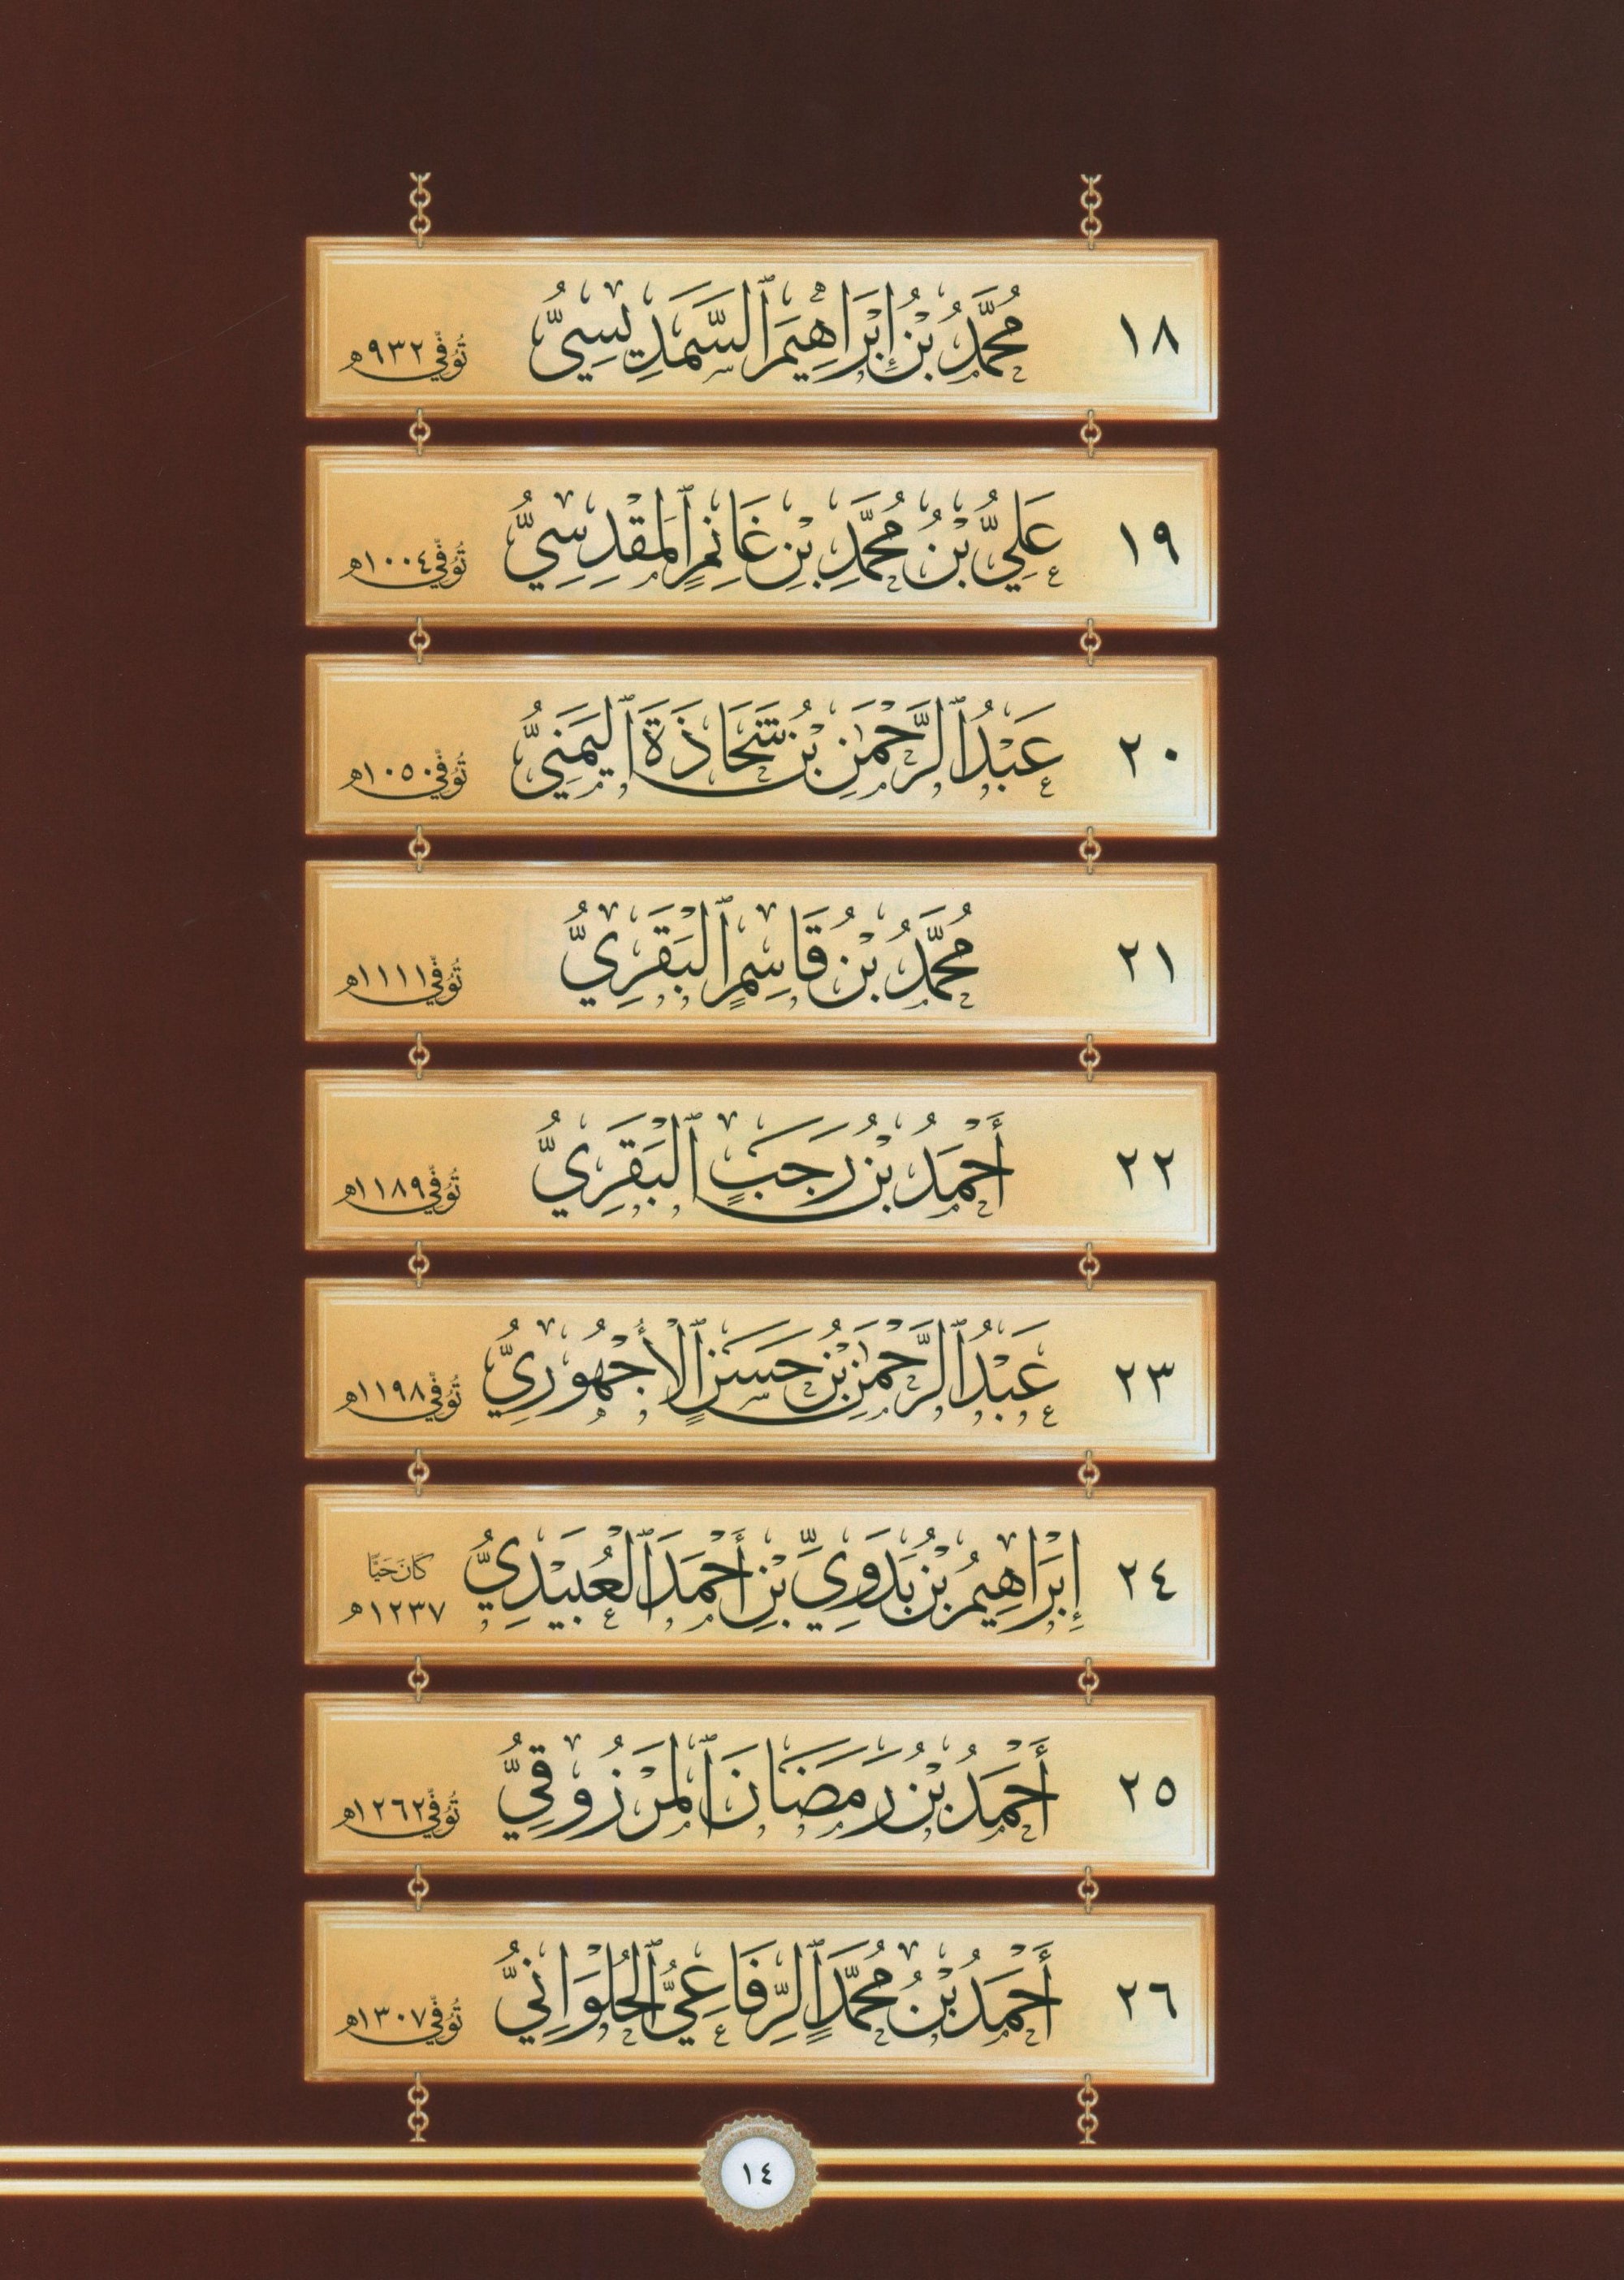 ١٨ مُحَمَّدُ بْنُ إِبْرَاهِيمَ ٱلسَّمَدِيسِيُّ تُوُفِّيَ ٩٣٢هـ
١٩ عَلِيُّ بْنُ مُحَمَّدِ بْنِ غَانِمٍ ٱلْمَقْدِسِيُّ تُوُفِّيَ ١٠٠٤هـ
٢٠ عَبْدُ ٱلرَّحْمَٰنِ بْنُ شَحَاذَةَ ٱلْيَمَنِيُّ تُوُفِّيَ ١٠٥٠هـ
٢١ مُحَمَّدُ بْنُ قَاسِمٍ ٱلْبَقَرِيُّ تُوُفِّيَ ١١١١هـ
٢٢ أَحْمَدُ بْنُ رَجَبٍ ٱلْبَقَرِيُّ تُوُفِّيَ ١١٨٩هـ
٢٣ عَبْدُ ٱلرَّحْمَٰنِ بْنُ حَسَنٍ ٱلْأُجْهُورِيُّ تُوُفِّيَ ١١٩٨هـ
٢٤ إِبْرَاهِيمُ بْنُ بَدَوِيِّ بْنِ أَحْمَدَ ٱلْعُبَيْدِيُّ كَانَ حَيًّا ١٢٣٧هـ
٢٥ أَحْمَدُ بْنُ رَمَضَانَ ٱلْمَرْزُوقِيُّ تُوُفِّيَ ١٢٦٢هـ
٢٦ أَحْمَدُ بْنُ مُحَمَّدٍ ٱلرِّفَاعِيُّ ٱلْحُلْوَانِيُّ تُوُفِّيَ ١٣٠٧هـ
١٤